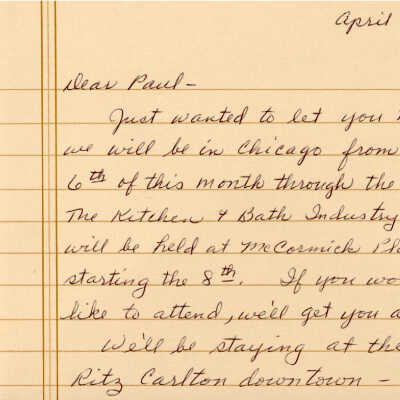 April
Dear Paul–
Just wanted to let you
we will be in Chicago from
6th of this month through the
The Kitchen & Bath Industry
will be held at McCormick
starting the 8th. If you
like to attend, we'll get you
We'll be staying at the
Ritz Carlton downtown –